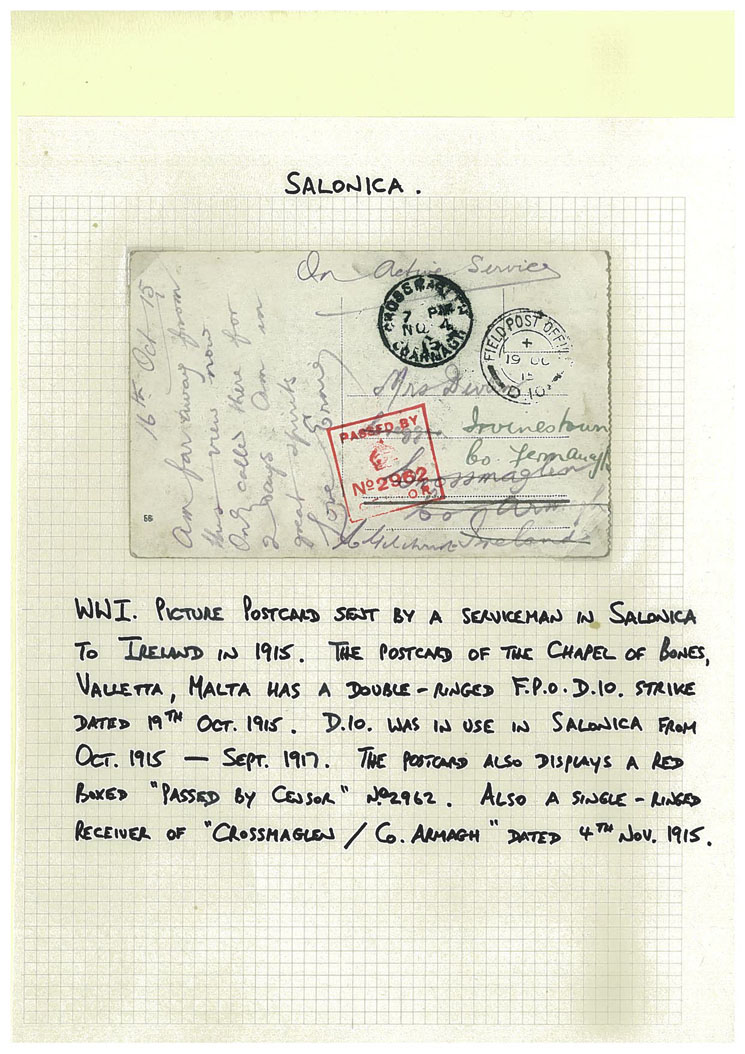 SALONICA.
On Active Service
16th Oct 15
Am far away from
this view now
Only called there for
2 days Am in
great spirits
Love
CROSSMAGLEN
7 PM
NO 4
15
CO ARMAGH
FIELD POST OFFI
+
19 OC
15
D.10
Mrs
Irvinestown
Co. Fermanagh
Crossmaglen
Co Arm
Ireland
PASSED BY
No 2962
O.R.
56
WWI. PICTURE POSTCARD SENT BY A SERVICEMAN IN SALONICA
TO IRELAND IN 1915. THE POSTCARD OF THE CHAPEL OF BONES,
VALLETTA, MALTA HAS A DOUBLE-RINGED F.P.O. D.10. STRIKE
DATED 19TH OCT. 1915. D.10. WAS IN USE IN SALONICA FROM
OCT. 1915 — SEPT. 1917. THE POSTCARD ALSO DISPLAYS A RED
BOXED "PASSED BY CENSOR" No2962. ALSO A SINGLE-RINGED
RECEIVER OF "CROSSMAGLEN / CO. ARMAGH" DATED 4TH NOV. 1915.